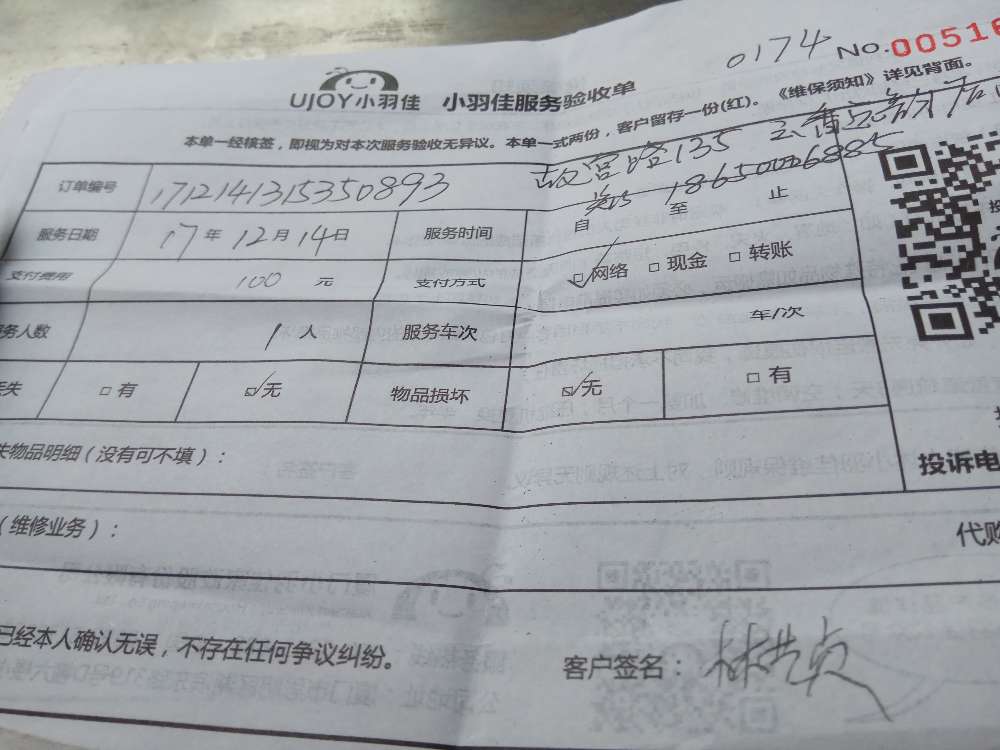 0174 No.00516
UJOY小羽佳 小羽佳服务验收单
本单一经核签，即视为对本次服务验收无异议。本单一式两份，客户留存一份(红)。《维保须知》详见背面。
故宫路135
18650026885
订单编号 1712141315350893
服务日期 17年12月14日 服务时间 自 至 止
支付费用 100 元 支付方式 ☑网络 □现金 □转账
务人数 1人 服务车次 车/次
失 □有 ☑无 物品损坏 ☑无 □有
失物品明细（没有可不填）：
投诉电
（维修业务）： 代购
已经本人确认无误，不存在任何争议纠纷。
客户签名：林